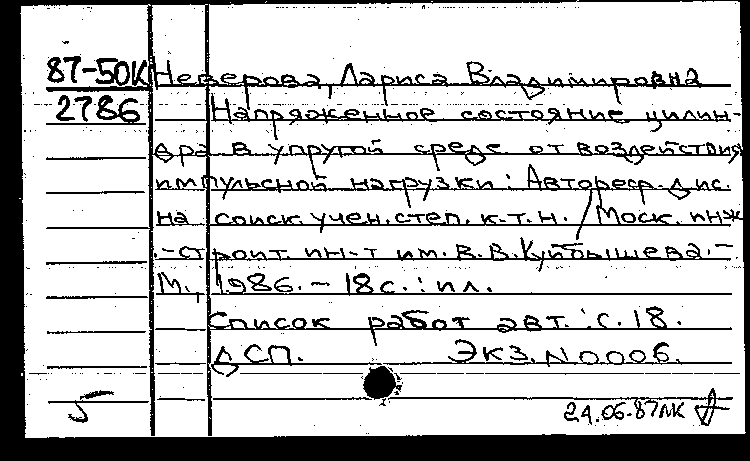 87-50К Неверова, Лариса Владимировна
2786 Напряженное состояние цилин-
дра в упругой среде от воздействия
импульсной нагрузки: Автореф. дис.
на соиск. учен. степ. к.т.н. / Моск. инж
.-строит. ин-т им. В.В.Куйбышева.-
М., 1986. - 18с. : ил.
Список работ авт.: с. 18.
ДСП. Экз. N 0006.
5 24.06.87 ЛК